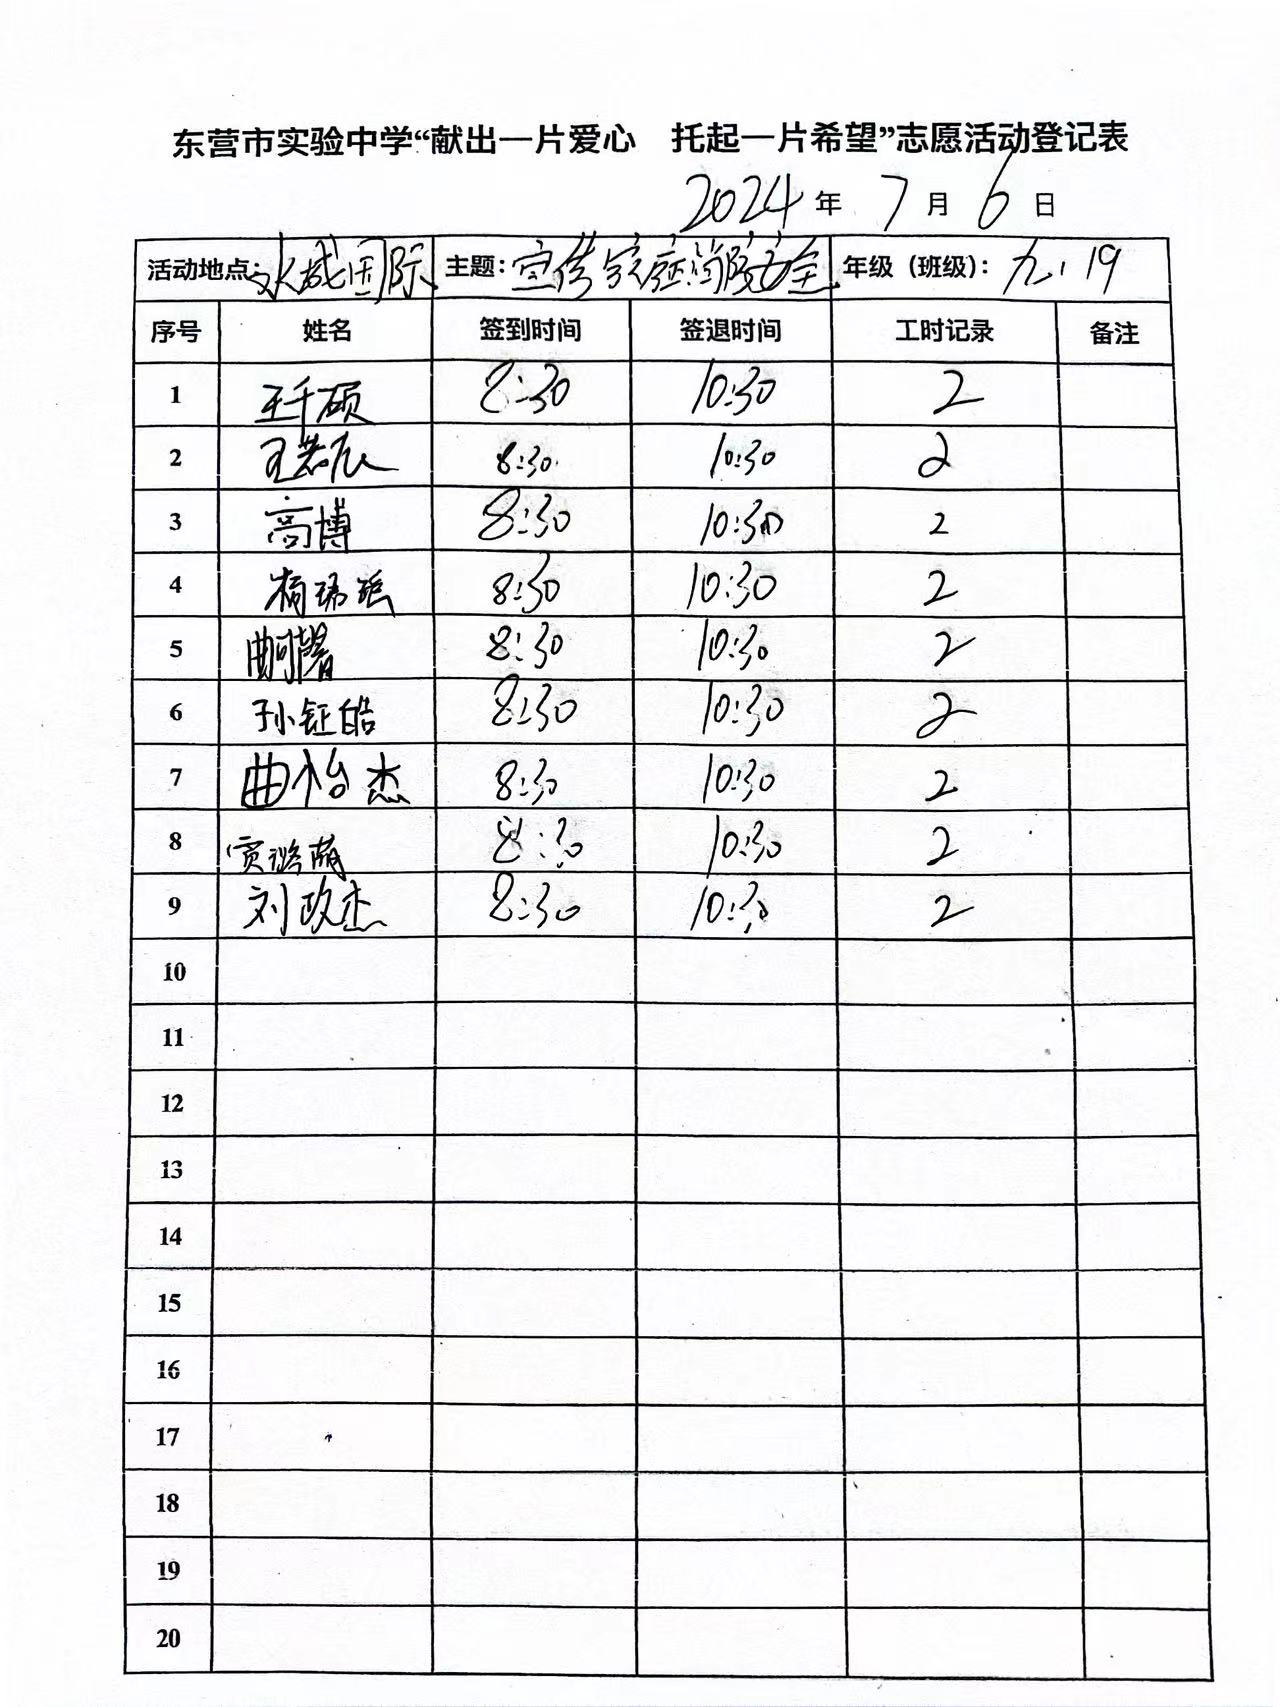 东营市实验中学“献出一片爱心 托起一片希望”志愿活动登记表
2024 年 7 月 6 日
活动地点: 水城国际 主题: 宣传 安全 年级（班级）: 九.19
序号 姓名 签到时间 签退时间 工时记录 备注
1 王千硕 8:30 10:30 2
2 王若辰 8:30 10:30 2
3 高博 8:30 10:30 2
4 杨瑞瑶 8:30 10:30 2
5 曲 8:30 10:30 2
6 孙钲皓 8:30 10:30 2
7 曲怡杰 8:30 10:30 2
8 8:30 10:30 2
9 刘政杰 8:30 10:30 2
10
11
12
13
14
15
16
17
18
19
20